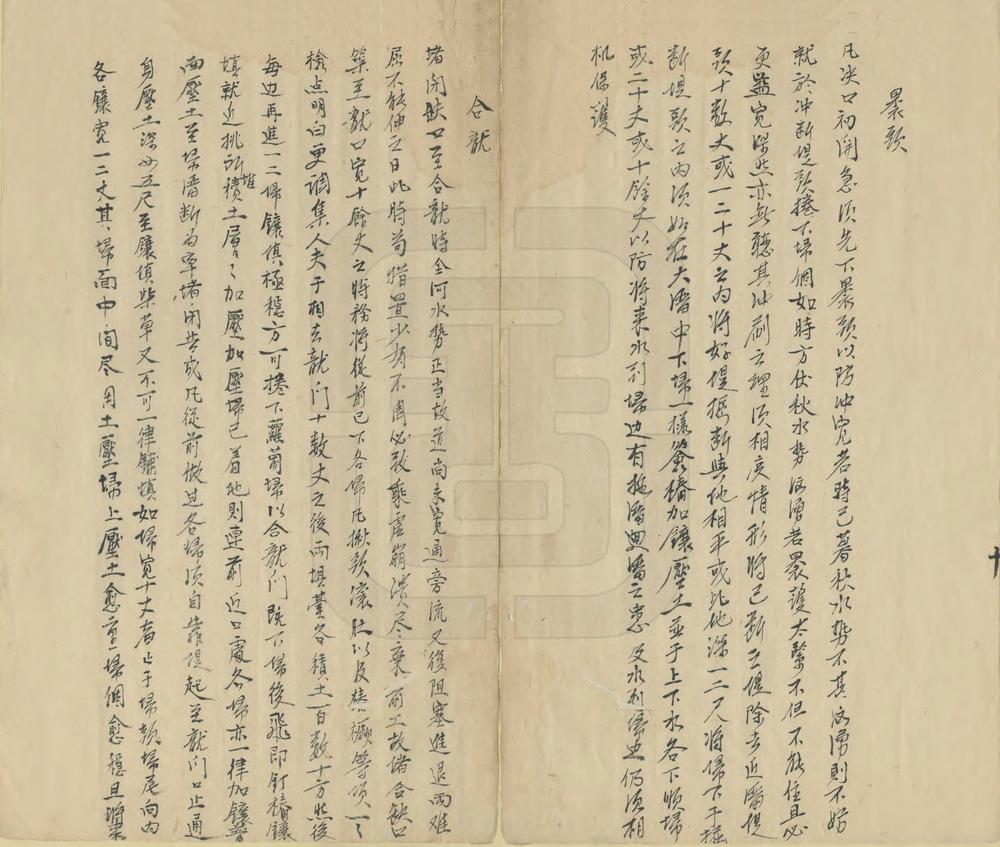 裹頭
凡决口初開急須先下裹頭以防冲寬若時已暮秋水勢不甚汹湧則不妨
就於冲斷堤頭捲下埽個如時方伏秋水勢汹湧若裹護太緊不但不能住且必
更益寬深然亦無聽其冲刷之理須相度情形將已斷之堤除去近溜堤
頭十數丈或一二十丈之内將好堤掘斷與他相平或比他深一二尺將埽下于掘
斷堤頭之内須如在大溜中下埽一樣簽樁加鑲壓土並于上下水各下順埽
或二十丈或十餘丈以防將来水到埽边有掏溜迴溜之患及水到埽边仍須相
机保護
合龍
堵閉缺口至合龍時全河水勢正当故道尚未寬通旁流又復阻塞進退兩难
屈不能伸之日此時苟措置少有不周必致乘虚崩潰尽棄前工故堵合缺口
築至龍口寬十餘丈之時務將從前已下各埽凡揪頭滚肚以及樁橛等項一一
檢点明白更調集人夫于相去龍門十數丈之後兩壩臺各積土一百數十方然後
每边再進一二埽鑲填極穩方可捲下蘿蔔埽以合龍門既下埽後飛即釘樁鑲
填就近挑所堆積土層層加壓加壓埽已着地則連前近口處各埽亦一律加鑲
面壓土至埽溜断為率堵閉者或凡從前做过各埽須自靠堤起至龍門口止通
身壓土深四五尺至鑲填柴草又不可一律鋪填如埽寬十丈者止于埽頭埽尾向内
各鑲寬一二丈其埽面中间尽用土壓埽上壓土愈重埽個愈穩且將来